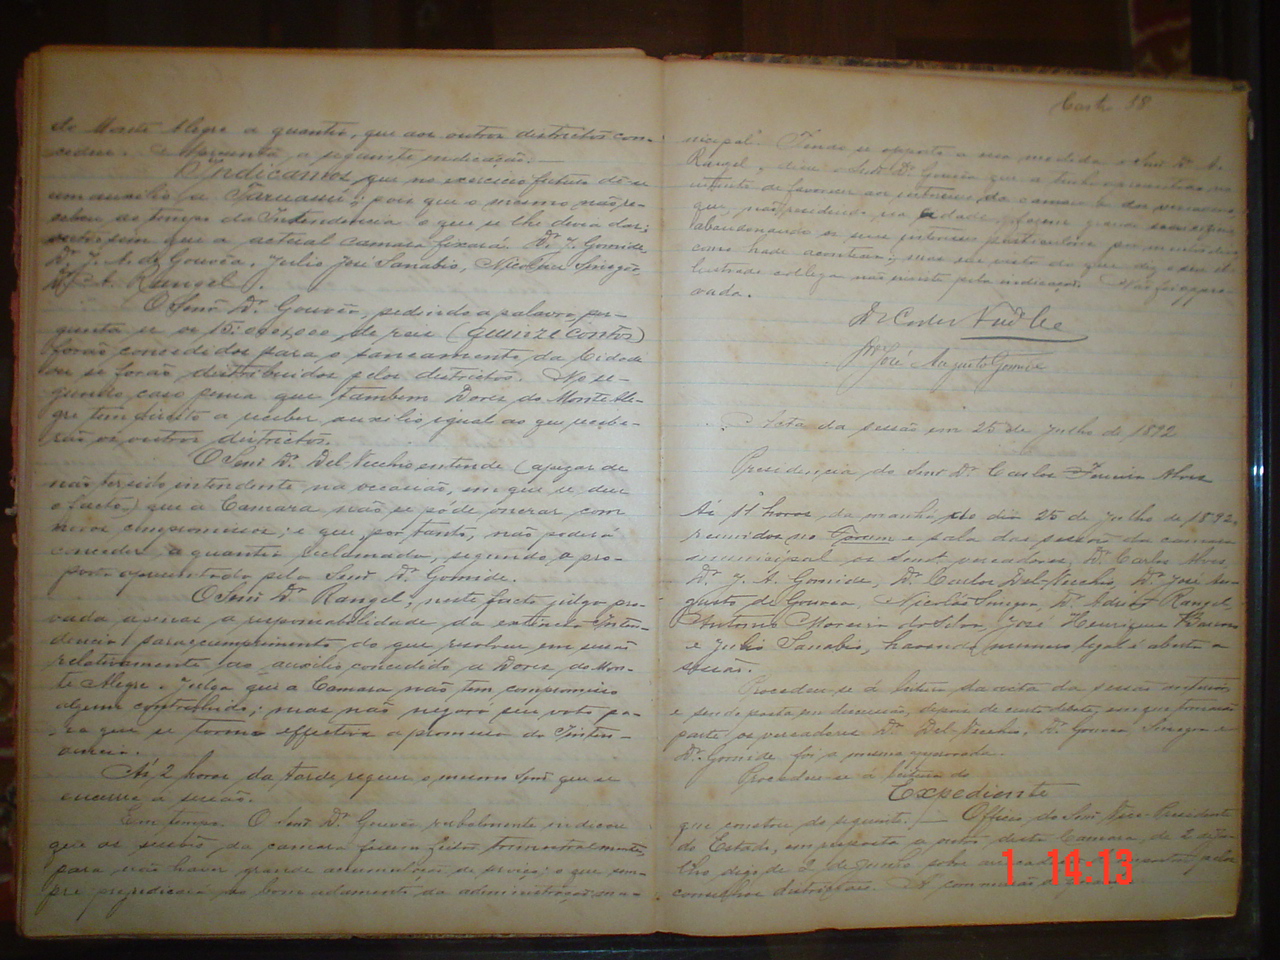 do Monte Alegre a quantia, que aos outros districtos con-
cedeu. Apresenta a seguinte indicação.—
Indicamos que no exercicio futuro dê-se
um auxilio a ; pois que o mesmo não re-
cebeu ao tempo da Intendencia o que se lhe devia dar;
sem que a actual camara fixará. Dr. J. Gomide
Dr. J. A. de Gouvêa, Julio José Sanabio, Nicolau Sinegra
Dr. A. Rangel.
O Senr. Dr. Gouvêa, pedindo a palavra, per-
gunta se os 15:000,000 de reis (quinze contos)
forão concedidos para o saneamento da Cidade
ou se forão distribuidos pelos districtos. No se-
gundo caso pensa que tambem Dores do Monte Ale-
gre tem direito a receber auxilio igual ao que recebe-
rão os outros districtos.
O Senr. Dr. Del-Vecchio entende (apezar de
não ter sido intendente na occasião, em que se deu
o facto) que a Camara não se póde onerar com
novos compromissos; e que, por tanto, não poderá
conceder a quantia reclamada, segundo a pro-
posta apresentada pelo Senr. Dr. Gomide.
O Senr. Dr. Rangel, neste facto julga pro-
vada a responsabilidade da extincta Inten-
dencia para cumprimento do que resolveu em sessão
relativamente ao auxilio concedido a Dores do Mon-
te Alegre. Julga que a Camara não tem compromisso
algum contrahido; mas não negará seu voto pa-
ra que se torne effectiva a promessa da Inten-
dencia.
Ás 2 horas da tarde requer o mesmo Senr. que se
encerre a sessão.
Em tempo. O Senr. Dr. Gouvêa verbalmente indicou
que as sessões da camara fossem feitas
para não haver grande accumulação de serviço; o que sem-
pre prejudicará ao bom andamento da administração mu-
58
nicipal. Tendo se opposto a essa medida o Senr. Dr. A.
Rangel, disse o Senr. Dr. Gouvêa que a tinha apresentado no
intuito de favorecer aos interesses da camara e dos vereadores
que, não residindo na cidade, fazem grande
abandonando os seus interesses particulares
como hade acontecer; mas em vista do que diz o seu il-
lustrado collega não insiste pela indicação. Não foi appro-
vada.
José Augusto Gouvêa
Acta da sessão em 25 de Julho de 1892
Presidencia do Senr. Dr. Carlos Ferreira Alves
Ás 11 horas da manhã, do dia 25 de Julho de 1892,
reunidos no Forum e sala das sessões da camara
municipal os senrs. vereadores, Dr. Carlos Alves,
Dr. J. A. Gomide, Dr. Carlos Del-Vecchio, Dr. José Au-
gusto de Gouvêa, Nicolau Sinegra, Dr. Rangel,
Antonio Moreira da Silva, José Henrique
e Julio Sanabio, havendo numero legal é aberta a
sessão.
Procedeu-se á leitura da acta da sessão anterior,
e sendo posta em discussão, depois de curto debate, em que tomarão
parte os vereadores Dr. Del-Vecchio, Dr. Gouvêa, Sinegra e
Dr. Gomide foi a mesma approvada.
Procedeu-se á leitura do
Expediente
que constou do seguinte:— Officio do Senr. Vice-Presidente
do Estado, em resposta a outro desta Camara, de 2 de Ju-
lho digo de 2 de Junho sobre
conselhos districtaes. Á commissão de
1 14:13